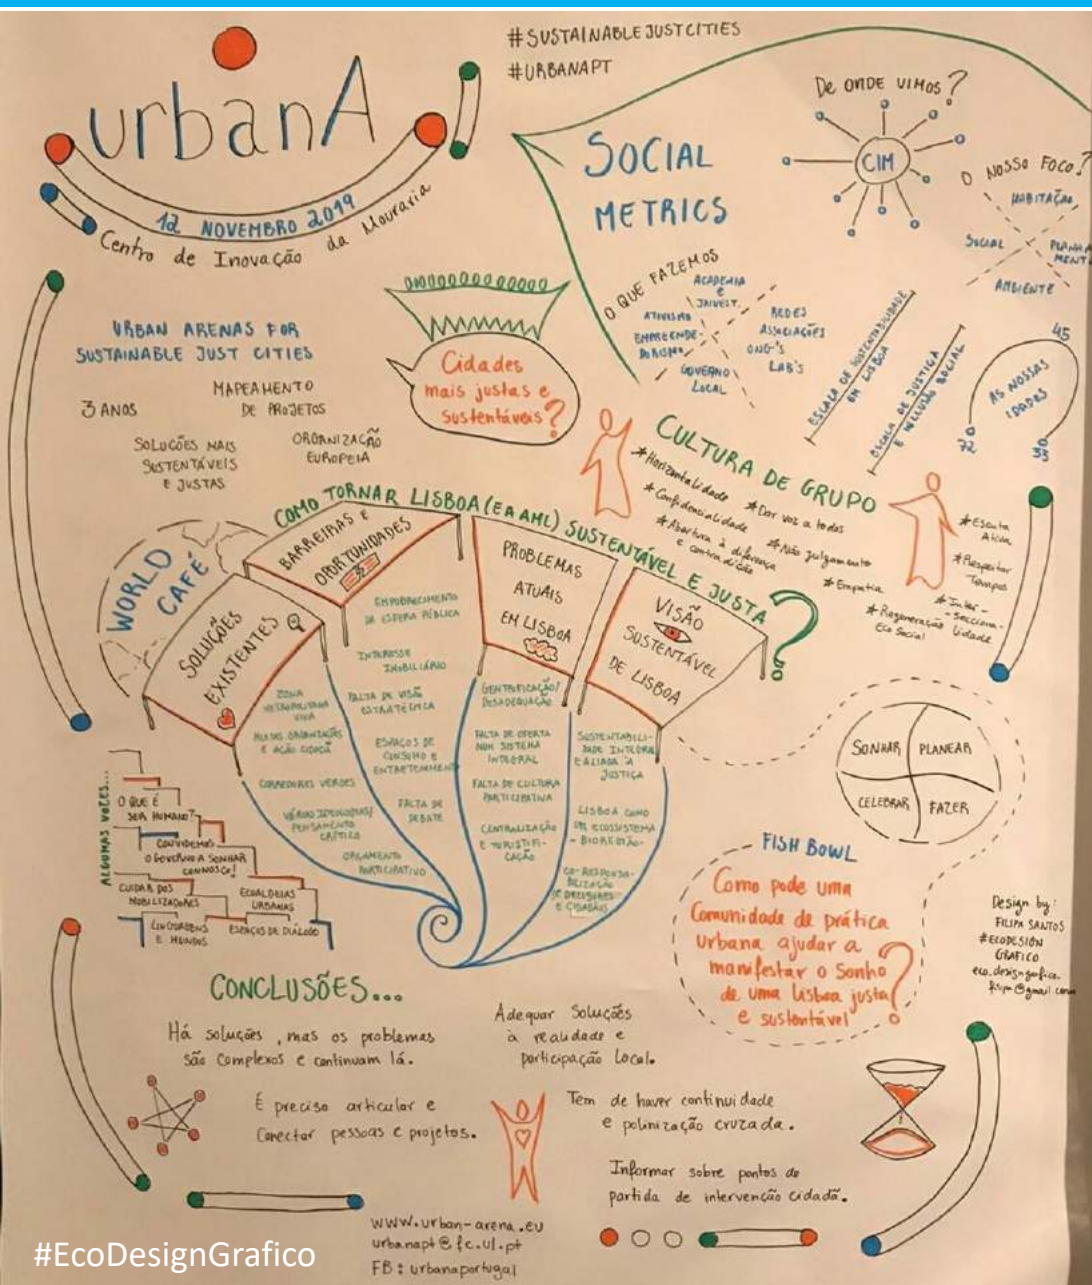 #SUSTAINABLEJUSTCITIES
#URBANAPT
urbanA
12 NOVEMBRO 2019
Centro de Inovação da Mouraria
URBAN ARENAS FOR
SUSTAINABLE JUST CITIES
3 ANOS
MAPEAMENTO
DE PROJETOS
SOLUÇÕES MAIS
SUSTENTÁVEIS
E JUSTAS
ORGANIZAÇÃO
EUROPEIA
Cidades
mais justas e
sustentáveis?
SOCIAL
METRICS
De ONDE VIMOS?
CIM
O NOSSO FOCO?
HABITAÇÃO
SOCIAL
AMBIENTE
O QUE FAZEMOS
ACADEMIA
E
ATIVISMO
EMPREENDE-
DORISMO
GOVERNO
LOCAL
REDES
ASSOCIAÇÕES
ONG'S
LAB'S
ESCALA DE SUSTENTABILIDADE
EM LISBOA
ESCALA DE JUSTIÇA
E INCLUSÃO SOCIAL
AS NOSSAS
IDADES
45
72
33
CULTURA DE GRUPO
* Horizontalidade
* Confidencialidade
* Abertura à diferença
e contradição
* Dar voz a todos
* Não julgamento
* Empatia
* Regeneração
Eco Social
* Escuta
Ativa
* Respeitar
Tempos
* Inter-
-secciona-
lidade
COMO TORNAR LISBOA (E A AML) SUSTENTÁVEL E JUSTA?
WORLD
CAFÉ
SOLUÇÕES
EXISTENTES
BARREIRAS E
OPORTUNIDADES
PROBLEMAS
ATUAIS
EM LISBOA
VISÃO
SUSTENTÁVEL
DE LISBOA
ZONA
METROPOLITANA
VIVA
E AÇÃO CIDADÃ
CORREDORES VERDES
VÁRIAS IDEOLOGIAS/
PENSAMENTO
CRÍTICO
ORÇAMENTO
PARTICIPATIVO
EMPOBRECIMENTO
DA ESFERA PÚBLICA
INTERESSE
IMOBILIÁRIO
FALTA DE VISÃO
ESTRATÉGICA
ESPAÇOS DE
CONSUMO E
ENTRETENIMENTO
FALTA DE
DEBATE
GENTRIFICAÇÃO/
DESADEQUAÇÃO
FALTA DE OFERTA
NUM SISTEMA
INTEGRAL
FALTA DE CULTURA
PARTICIPATIVA
CENTRALIZAÇÃO
E TURISTIFI-
CAÇÃO
SUSTENTABILI-
DADE INTEGRAL
E ALIADA À
JUSTIÇA
LISBOA COMO
UM ECOSSISTEMA
- BIOREGIÃO-
CO-RESPONSA-
BILIZAÇÃO
DE DECISORES
E CIDADÃOS
ALGUMAS VOZES...
O QUE É
SER HUMANO?
CONVIDEMOS
O GOVERNO A SONHAR
CONNOSCO!
CUIDAR DOS
MOBILIZADORES
ECOALDEIAS
URBANAS
LINGUAGENS
E MUNDOS
ESPAÇOS DE DIÁLOGO
SONHAR
PLANEAR
CELEBRAR
FAZER
FISH BOWL
Como pode uma
Comunidade de prática
urbana ajudar a
manifestar o Sonho
de uma Lisboa justa
e sustentável?
Design by:
FILIPA SANTOS
#ECODESIGN
GRAFICO
eco.designgrafico.
filipa@gmail.com
CONCLUSÕES...
Há soluções, mas os problemas
são complexos e continuam lá.
Adequar Soluções
à realidade e
participação Local.
É preciso articular e
Conectar pessoas e projetos.
Tem de haver continuidade
e polinização cruzada.
Informar sobre pontos de
partida de intervenção cidadã.
www.urban-arena.eu
urbanapt@fc.ul.pt
FB: urbanaportugal
#EcoDesignGrafico